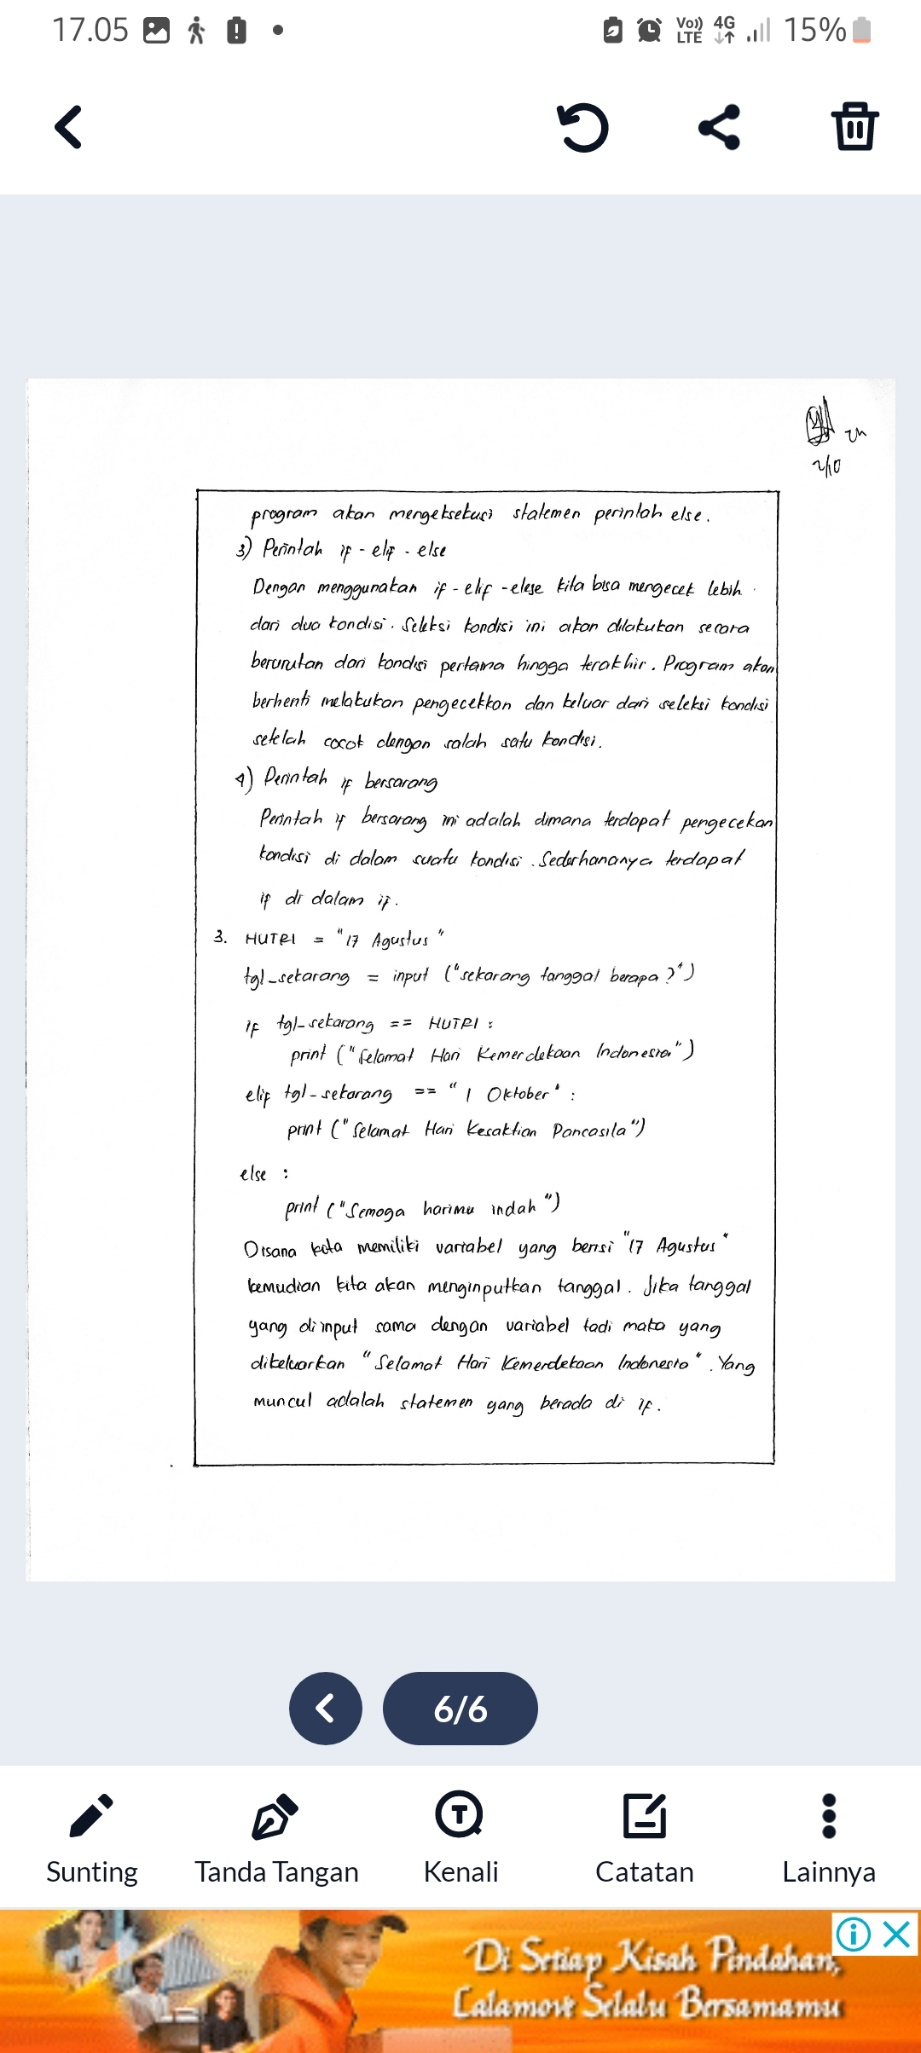 17.05
Vo)) LTE 4G 15%
2/10
program akan mengeksekusi statemen perintah else.
3) Perintah if - elif - else
Dengan menggunakan if - elif - elese kita bisa mengecek lebih
dari dua kondisi. Seleksi kondisi ini akan dilakukan secara
berurutan dari kondisi pertama hingga terakhir. Program akan
berhenti melakukan pengecekkan dan keluar dari seleksi kondisi
setelah cocok dengan salah satu kondisi.
4) Perintah if bersarang
Perintah if bersarang ini adalah dimana terdapat pengecekan
kondisi di dalam suatu kondisi. Sederhananya terdapat
if di dalam if.
3. HUTRI = "17 Agustus"
tgl_sekarang = input ("sekarang tanggal berapa?")
if tgl_sekarang == HUTRI :
print ("Selamat Hari Kemerdekaan Indonesia")
elif tgl_sekarang == "1 Oktober" :
print ("Selamat Hari Kesaktian Pancasila")
else :
print ("Semoga harimu indah")
Disana kita memiliki variabel yang berisi "17 Agustus"
kemudian kita akan menginputkan tanggal. Jika tanggal
yang di input sama dengan variabel tadi maka yang
dikeluarkan "Selamat Hari Kemerdekaan Indonesia". Yang
muncul adalah statemen yang berada di if.
6/6
Sunting Tanda Tangan Kenali Catatan Lainnya
Di Setiap Kisah Pindahan,
Lalamove Selalu Bersamamu